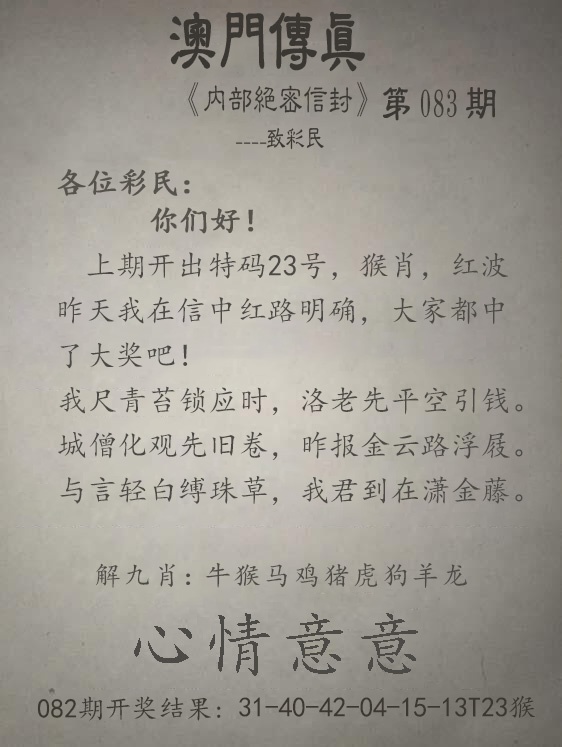 澳門傳真
《内部絕密信封》第083期
----致彩民
各位彩民：
你们好！
上期开出特码23号，猴肖，红波
昨天我在信中红路明确，大家都中
了大奖吧！
我尺青苔锁应时，洛老先平空引钱。
城僧化观先旧卷，昨报金云路浮屐。
与言轻白缚珠草，我君到在潇金藤。
解九肖：牛猴马鸡猪虎狗羊龙
心情意意
082期开奖结果：31-40-42-04-15-13T23猴